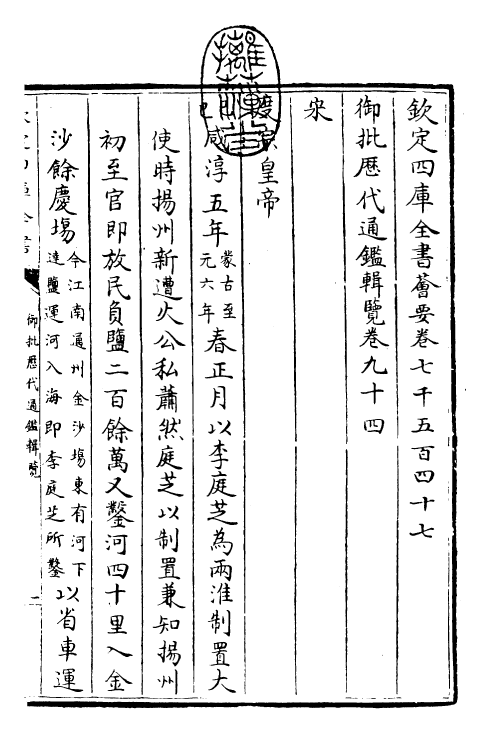 欽定四庫全書薈要卷七千五百四十七
御批歷代通鑑輯覽卷九十四
宋
度宗皇帝
己咸淳五年蒙古至元六年春正月以李庭芝為兩淮制置大
使時揚州新遭火公私蕭然庭芝以制置兼知揚州
初至官即放民負鹽二百餘萬又鑿河四十里入金
沙餘慶場今江南通州金沙場東有河下達鹽運河入海即李庭芝所鑿以省車運
御批歷代通鑑輯覽
一